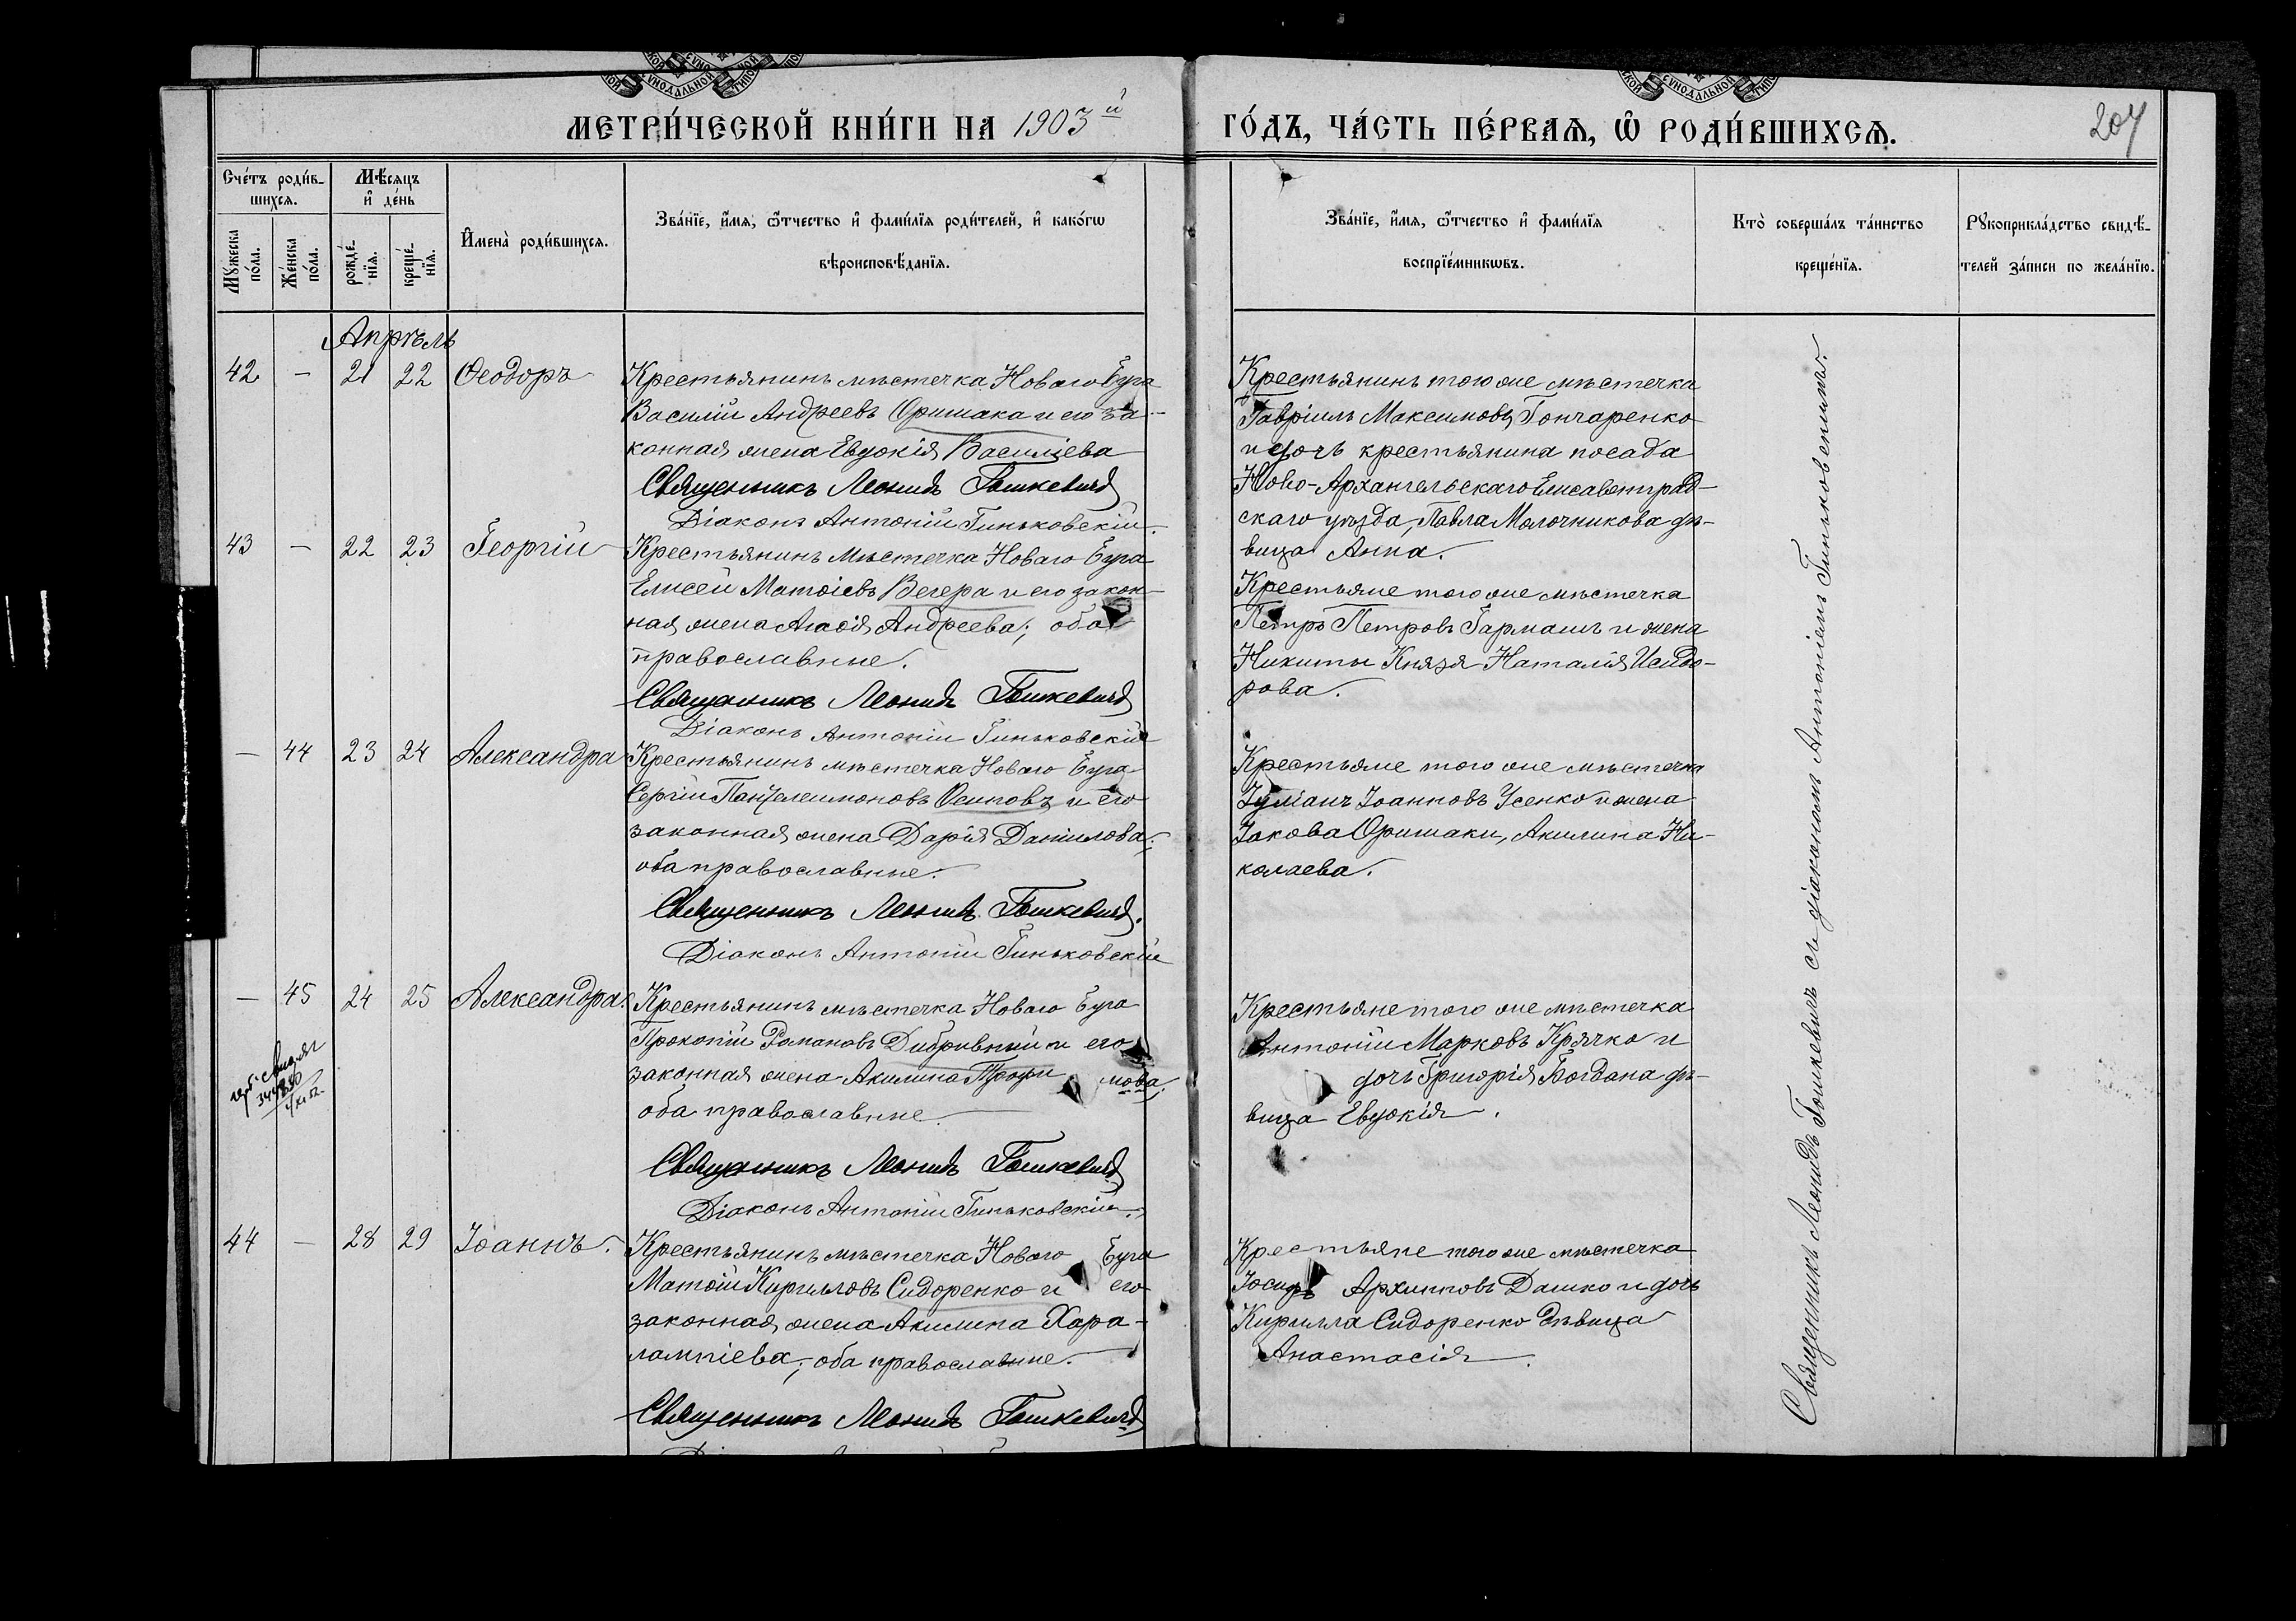 МЕТРИ́ЧЕСКОЙ КНИ́ГИ НА 1903й ГО́ДЪ, ЧА́СТЬ ПЕ́РВАЯ, Ѡ РОДИ́ВШИХСЯ.
207
Сче́тъ роди́в-
шихся.
Мѣ́сяцъ
и҆ де́нь
Мꙋ́жеска
по́ла.
Же́нска
по́ла.
рожде́-
нїя.
креще́-
нїя.
И҆мена̀ роди́вшихся.
Зва́нїе, и҆́мя, ѻ҆́тчество и҆ фами́лїя роди́телей, и҆ како́гѡ
вѣроисповѣ́данїя.
Зва́нїе, и҆́мя, ѻ҆́тчество и҆ фами́лїя
воспрїе́мникѡвъ.
Кто̀ соверша́лъ та́инство
креще́нїя.
Рꙋкоприкла́дство свидѣ́-
телей за́писи по жела́нїю.
Апрѣль
42 - 21 22 Ѳеодоръ
Крестьянинъ мѣстечка Новаго Буга
Василій Андреевъ Оришака и его за-
конная жена Евдокія Василіева
Священникъ Леонидъ Гошкевичъ
Діаконъ Антоній Гиньковскій
Крестьянинъ того же мѣстечка
Гавріилъ Максимовъ Гончаренко
и дочь крестьянина посада
Ново-Архангельскаго Елисаветград-
скаго уѣзда, Павла Молочникова дѣ-
вица Анна.
43 - 22 23 Георгій
Крестьянинъ мѣстечка Новаго Буга
Елисей Матѳіевъ Вегера и его закон-
ная жена Агаѳія Андреева; оба
православные.
Священникъ Леонидъ Гошкевичъ
Діаконъ Антоній Гиньковскій
Крестьяне того же мѣстечка
Петръ Петровъ Гармашъ и жена
Никиты Князя Наталія Исидо-
рова.
- 44 23 24 Александра
Крестьянинъ мѣстечка Новаго Буга
Сергій Пантелеимоновъ Осиповъ и его
законная жена Дарія Даніилова;
оба православные.
Священникъ Леонидъ Гошкевичъ.
Діаконъ Антоній Гиньковскій
Крестьяне того же мѣстечка
Іуліанъ Іоанновъ Усенко и жена
Іакова Оришаки, Акилина Ни-
колаева.
- 45 24 25 Александра.
344830
Крестьянинъ мѣстечка Новаго Буга
Прокопій Романовъ Дибривный и его
законная жена Акилина Трофимова;
оба православные.
Священникъ Леонидъ Гошкевичъ
Діаконъ Антоній Гиньковскій.
Крестьяне того же мѣстечка
Антоній Марковъ Крячко и
дочь Григорія Богдана дѣ-
вица Евдокія.
44 - 28 29 Іоаннъ.
Крестьянинъ мѣстечка Новаго Буга
Матѳій Кирилловъ Сидоренко и его
законная жена Акилина Хара-
лампіева; оба православные.
Священникъ Леонидъ Гошкевичъ
Крестьяне того же мѣстечка
Іосифъ Архиповъ Дашко и дочь
Кирилла Сидоренко дѣвица
Анастасія.
Священникъ Леонидъ Гошкевичъ съ діакономъ Антоніемъ Гиньковскимъ.